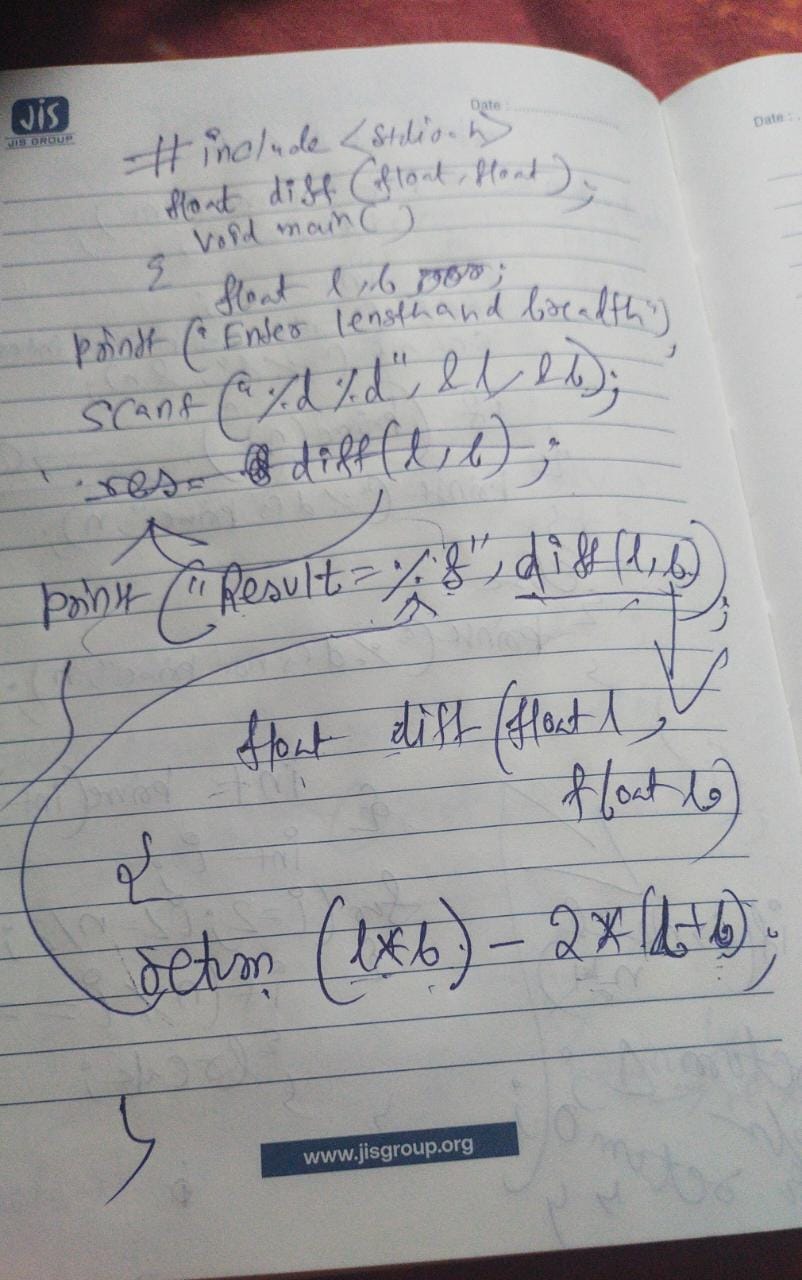 JIS
JIS GROUP
Date :
Date :
# include <stdio.h>
float diff (float, float);
void main()
{
float l, b ;
printf ("Enter length and breadth");
scanf ("%d %d", &l, &b);
res = diff(l, b);
printf ("Result = %f", diff(l, b));
}
float diff (float l,
float b)
{
return (l*b) - 2*(l+b);
}
www.jisgroup.org